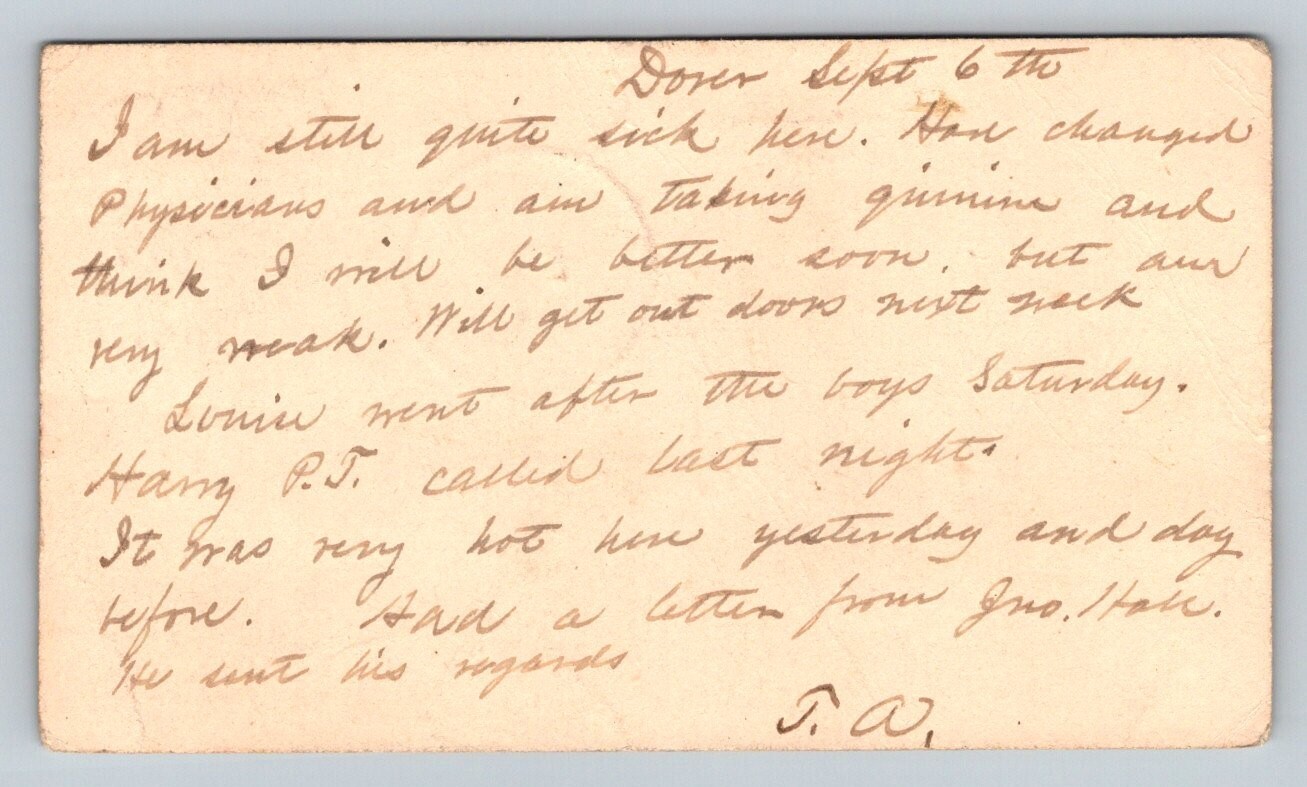 Dover Sept 6 th
I am still quite sick here. Have changed
Physicians and am taking quinine and
think I will be better soon. but am
very weak. Will get out doors next week
Louise went after the boys Saturday.
Harry P.T. called last night.
It was very hot here yesterday and day
before. Had a letter from Jno. Hall.
He sent his regards
T. A.